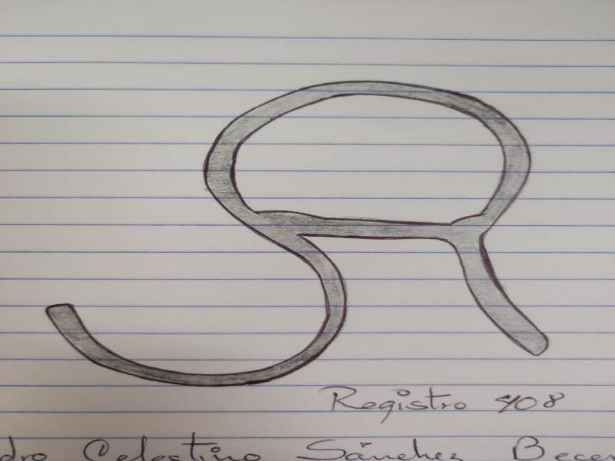 Registro 408
dro Celestino Sánchez Becer